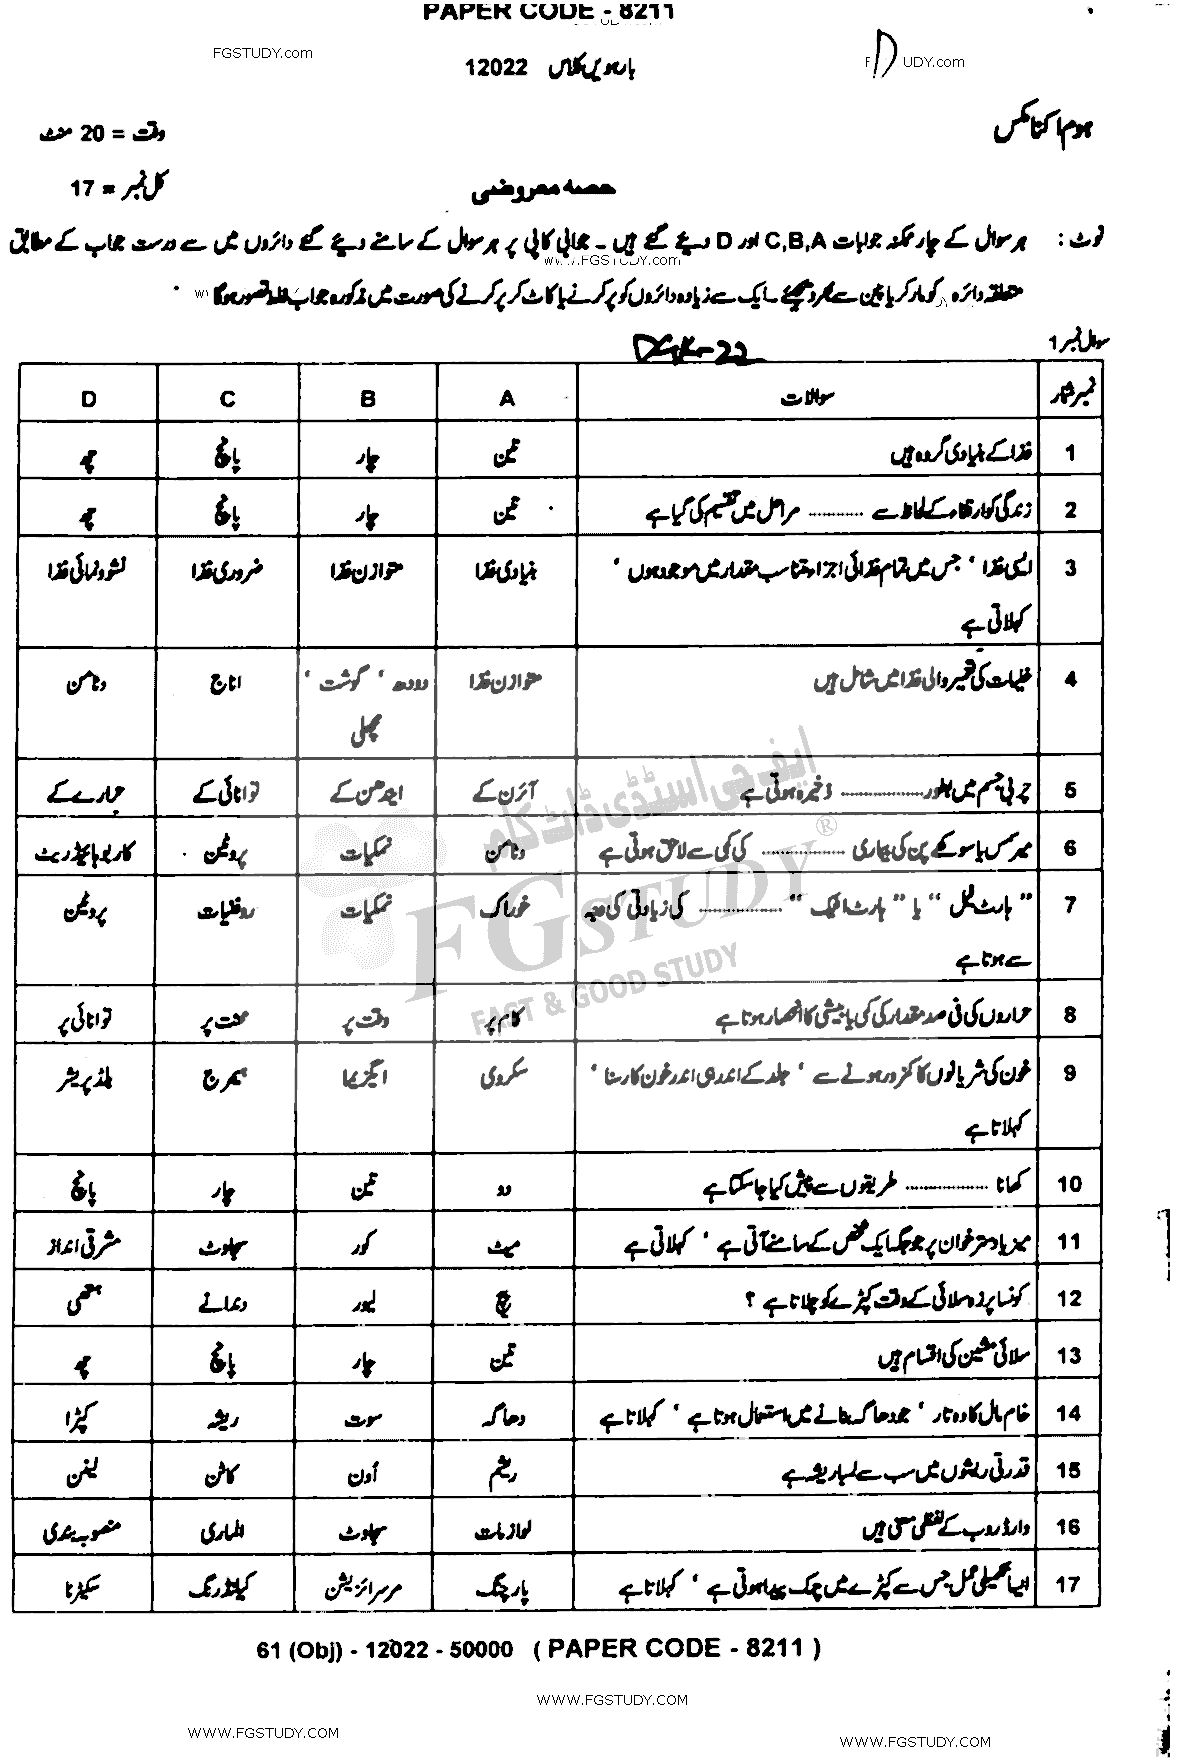 PAPER CODE - 8211
FGSTUDY.com
بارہویں کلاس 12022
D
UDY.com
ہوم اکنامکس
وقت = 20 منٹ
حصہ معروضی
کل نمبر = 17
نوٹ : ہر سوال کے چار ممکنہ جوابات C,B,A اور D دیئے گئے ہیں ۔ جوابی کاپی پر ہر سوال کے سامنے دیئے گئے دائروں میں سے درست جواب کے مطابق
WWW.FGSTUDY.com
متعلقہ دائرہ کو مارکر یا پین سے بھر دیجیئے ۔ ایک سے زیادہ دائروں کو پر کرنے یا کاٹ کر پر کرنے کی صورت میں مذکورہ جواب غلط تصور ہو گا
سوال نمبر 1
DGK-22
نمبر شمار سوالات A B C D
1 غذا کے بنیادی گروہ ہیں تین چار پانچ چھ
2 زندگی کو ارتقاء کے لحاظ سے ............ مراحل میں تقسیم کیا گیا ہے تین چار پانچ چھ
3 ایسی غذا ' جس میں تمام غذائی اجزا متناسب مقدار میں موجود ہوں ' بنیادی غذا متوازن غذا ضروری غذا نشوونمائی غذا
کہلاتی ہے
4 خلیات کی تعمیر والی غذا میں شامل ہیں متوازن غذا دودھ ' گوشت ' اناج وٹامن
مچھلی
5 چربی جسم میں بطور ................ ذخیرہ ہوتی ہے آئرن کے ایندھن کے توانائی کے حرارے کے
6 میرسمس یا سوکھے پن کی بیماری ................ کی کمی سے لاحق ہوتی ہے وٹامن نمکیات پروٹین کاربوہائیڈریٹ
7 " ہارٹ فیل " یا " ہارٹ اٹیک " ................ کی زیادتی کی وجہ خوراک نمکیات روغنیات پروٹین
سے ہوتا ہے
8 حراروں کی فی صد مقدار کی کمی یا بیشی کا انحصار ہوتا ہے کام پر وقت پر محنت پر توانائی پر
9 خون کی شریانوں کا کمزور ہونے سے ' جلد کے اندر ہی اندر خون کا رسنا ' سکروی ایگزیما ہیمرج بلڈ پریشر
کہلاتا ہے
10 کھانا ................ طریقوں سے پیش کیا جا سکتا ہے دو تین چار پانچ
11 میز یا دسترخوان پر جو جگہ ایک شخص کے سامنے آتی ہے ' کہلاتی ہے میٹ کور سجاوٹ مشرقی انداز
12 کونسا پرزہ سلائی کے وقت کپڑے کو چلاتا ہے ؟ پیچ لیور دندانے ہتھی
13 سلائی مشین کی اقسام ہیں تین چار پانچ چھ
14 خام مال کا وہ تار ' جو دھاگہ بنانے میں استعمال ہوتا ہے ' کہلاتا ہے دھاگہ سوت ریشہ کپڑا
15 قدرتی ریشوں میں سب سے لمبا ریشہ ہے ریشم اُون کاٹن لینن
16 وارڈروب کے لفظی معنی ہیں لوازمات سجاوٹ الماری منصوبہ بندی
17 ایسا تکمیلی عمل جس سے کپڑے میں چمک پیدا ہوتی ہے ' کہلاتا ہے پارچنگ مرسرائزیشن کیلنڈرنگ سکیڑنا
ایف جی اسٹڈی ڈاٹ کام
FGSTUDY ®
FAST & GOOD STUDY
61 (Obj) - 12022 - 50000 ( PAPER CODE - 8211 )
WWW.FGSTUDY.COM
WWW.FGSTUDY.COM
WWW.FGSTUDY.COM